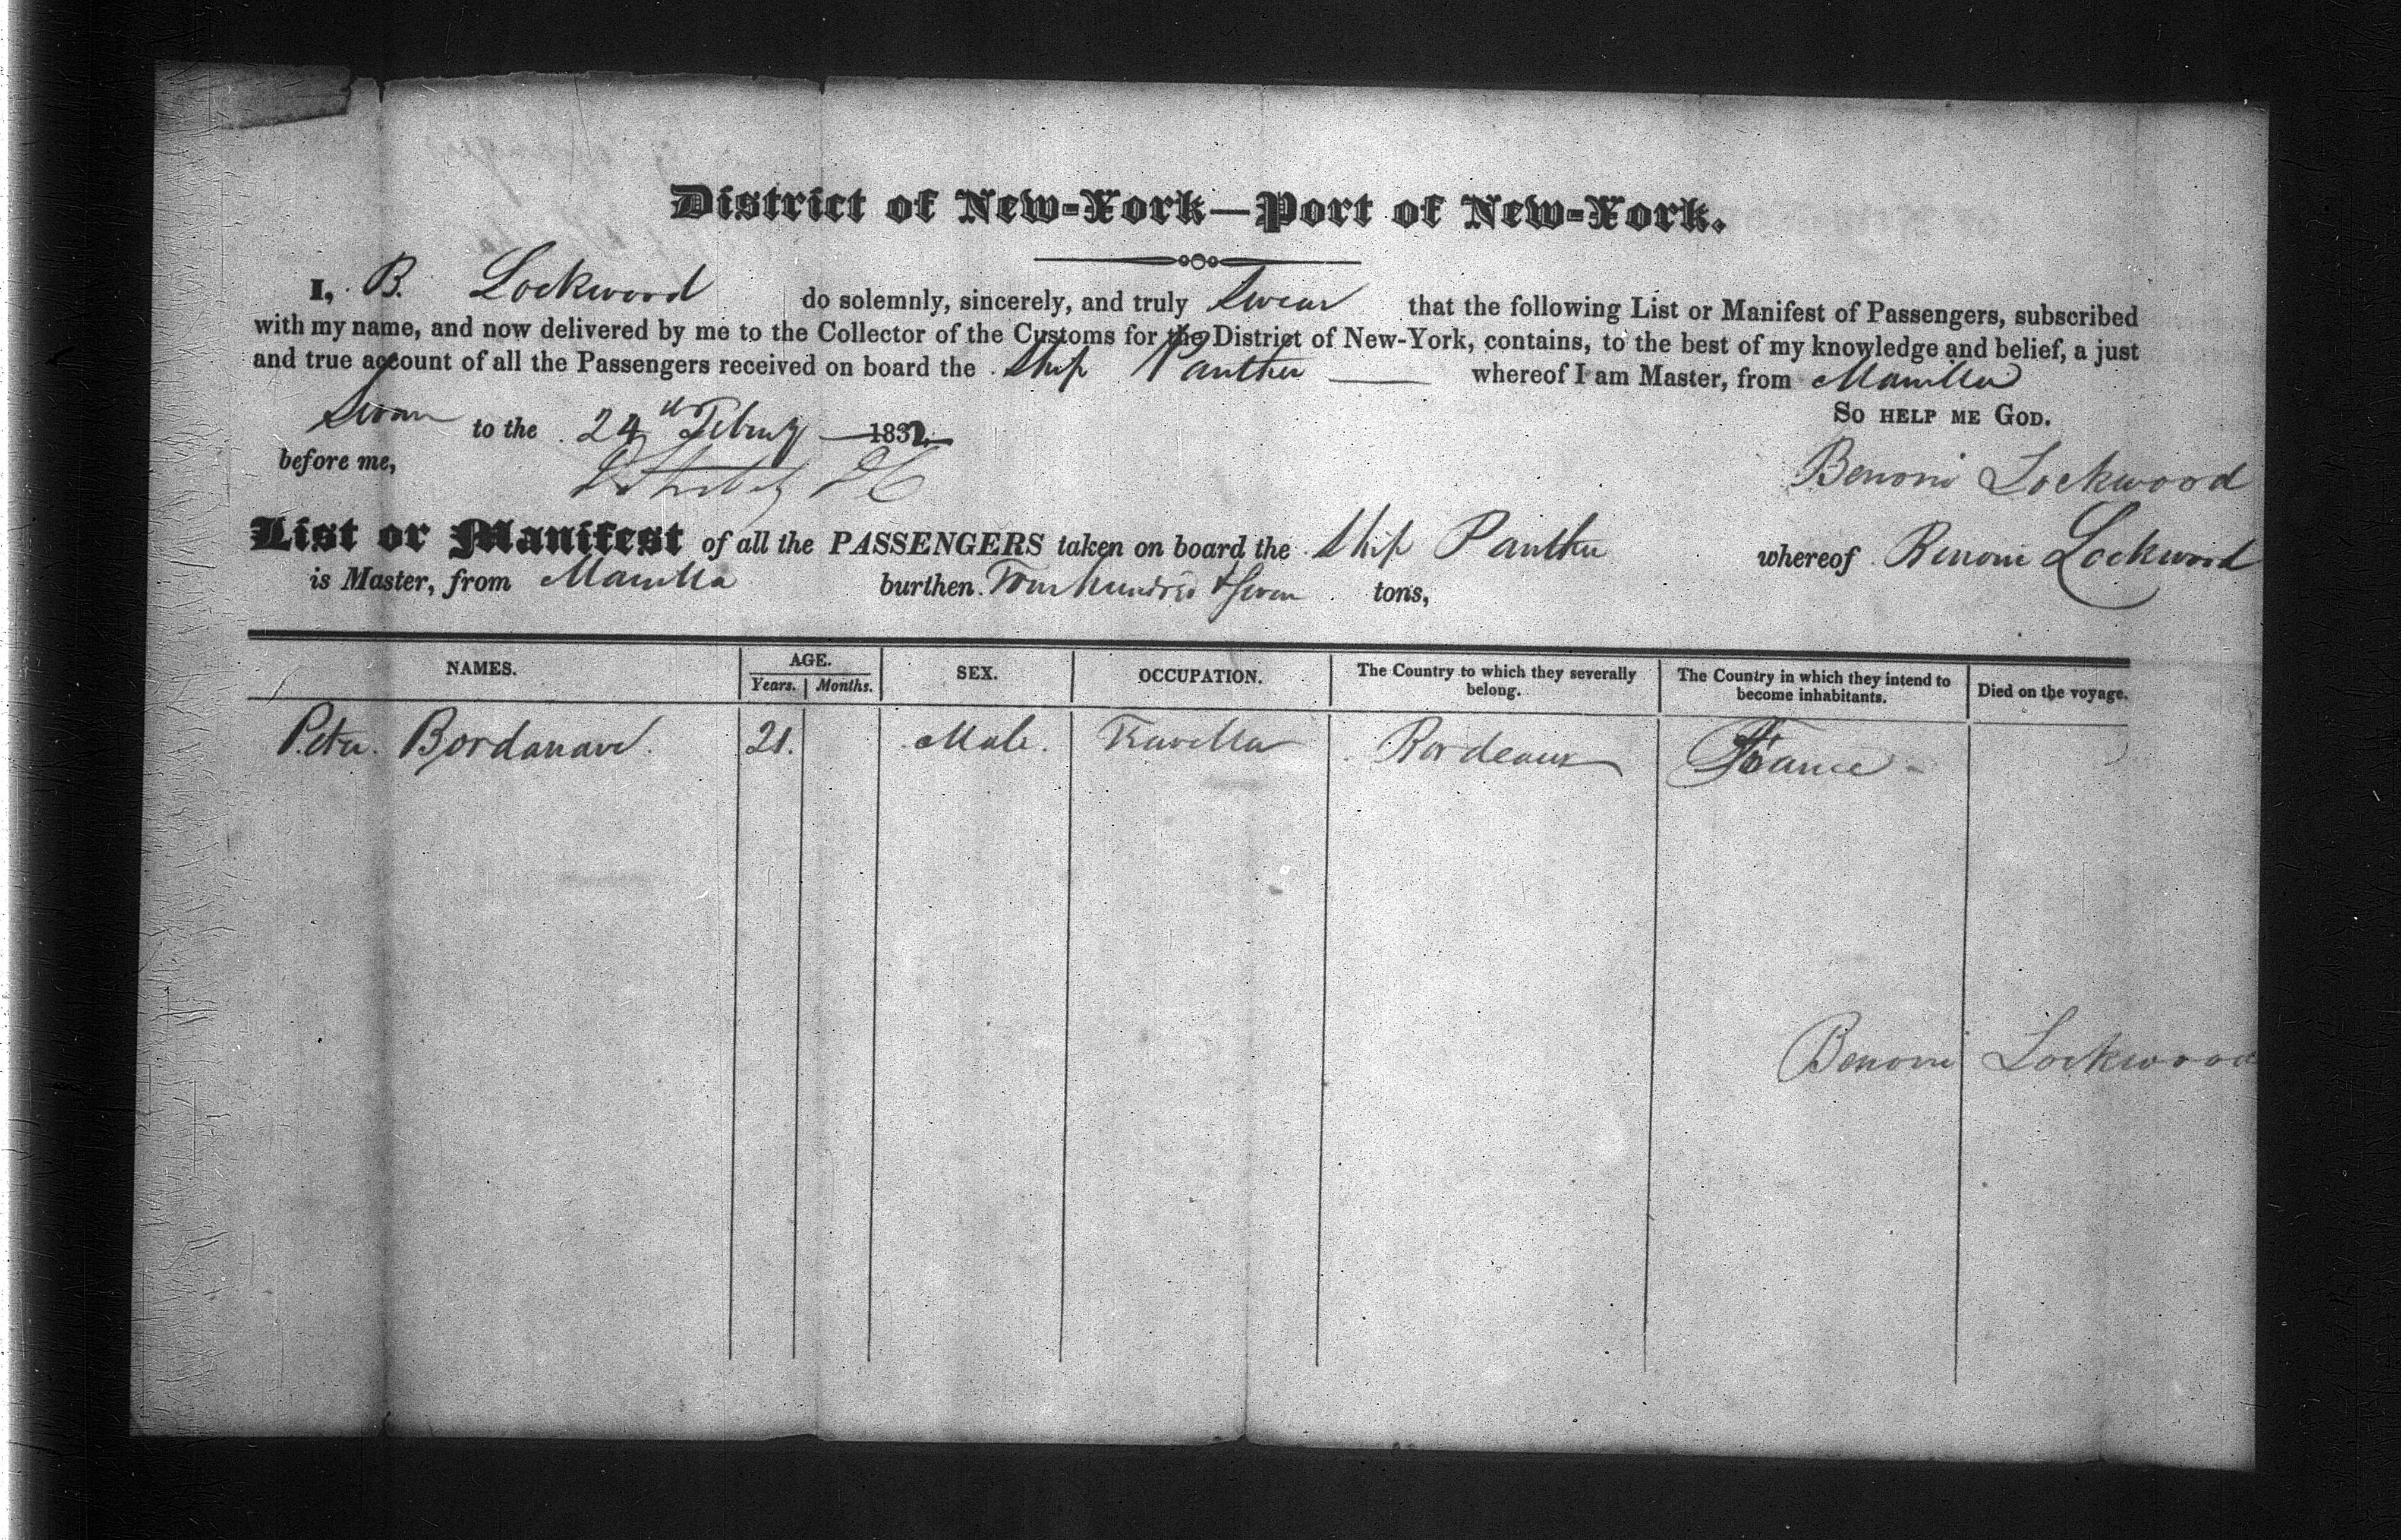 District of New-York—Port of New-York.
I, B. Lockwood do solemnly, sincerely, and truly Swear that the following List or Manifest of Passengers, subscribed
with my name, and now delivered by me to the Collector of the Customs for the District of New-York, contains, to the best of my knowledge and belief, a just
and true account of all the Passengers received on board the Ship Panther whereof I am Master, from Manilla
So help me God.
Sworn to the 24th Februy 1832
before me,
Benoni Lockwood
List or Manifest of all the PASSENGERS taken on board the Ship Panther whereof Benoni Lockwood
is Master, from Manilla burthen Four hundred & Seven tons,
NAMES. AGE. SEX. OCCUPATION. The Country to which they severally belong. The Country in which they intend to become inhabitants. Died on the voyage.
Years. Months.
Peter Bordanave. 21. Male. Traveller Bordeaux France -
Benoni Lockwood